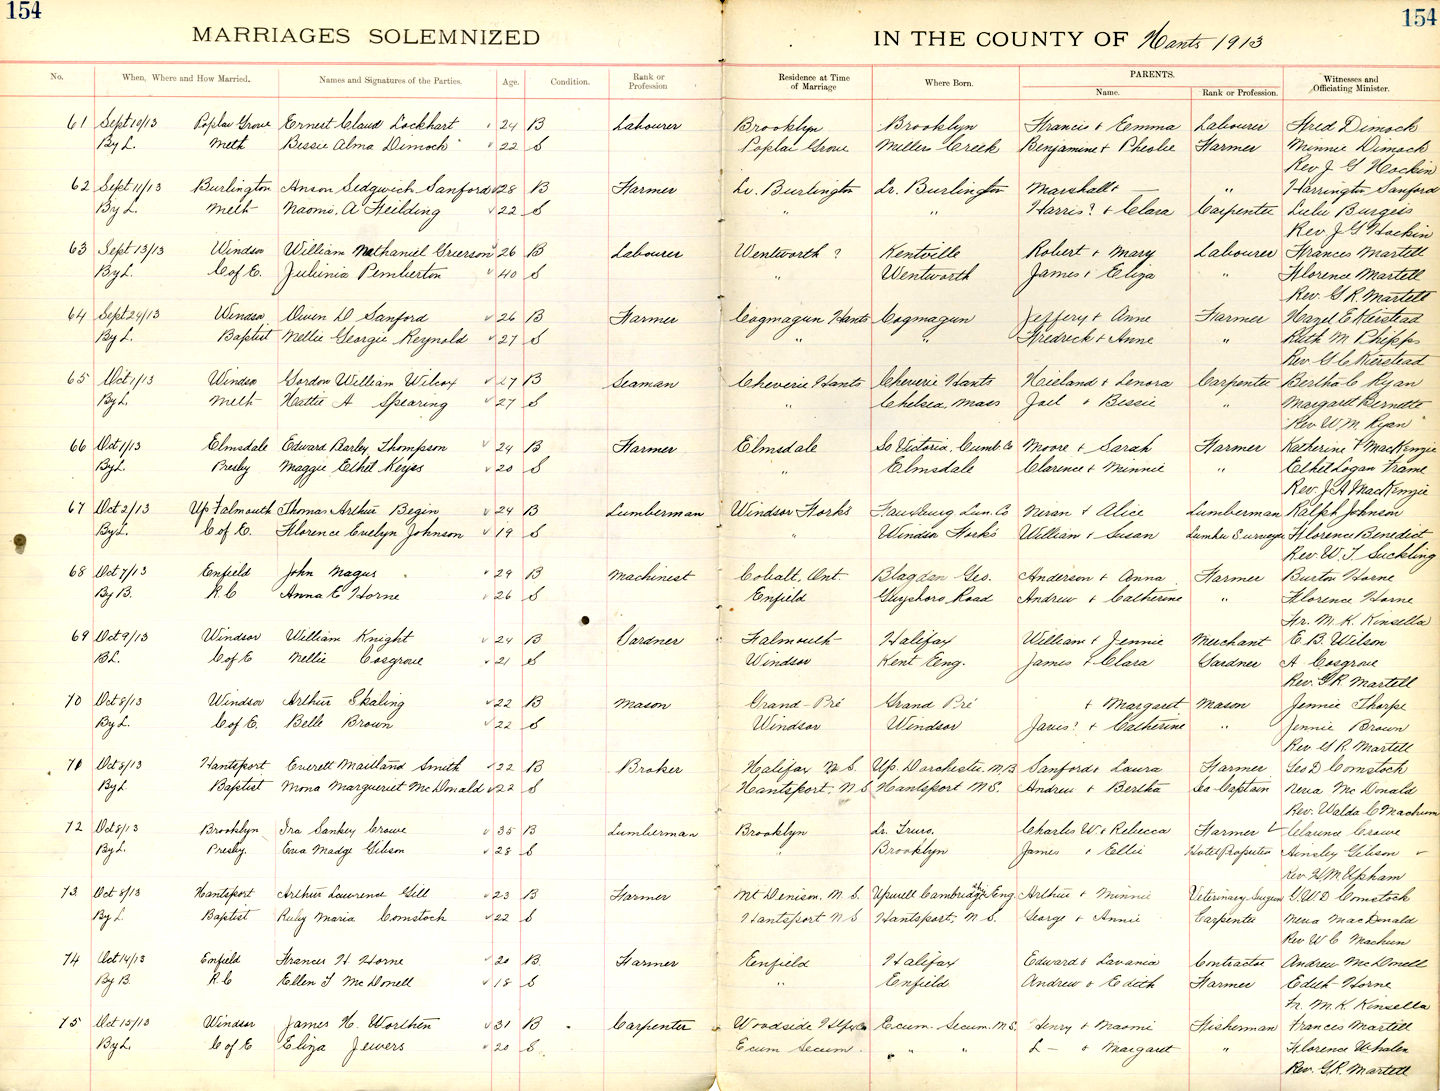 154
154
MARRIAGES SOLEMNIZED IN THE COUNTY OF Hants 1913
No. When, Where and How Married. Names and Signatures of the Parties. Age. Condition. Rank or Profession Residence at Time of Marriage Where Born. PARENTS. Name. Rank or Profession. Witnesses and Officiating Minister.
61 Sept 10/13 Poplar Grove Ernest Claud Lockhart 24 B Labourer Brooklyn Brooklyn Francis + Emma Labourer Fred Dimock
By L. Meth Bessie Alma Dimock 22 S Poplar Grove Millers Creek Benjamine + Pheobie Farmer Minnie Dimock
Rev J G Hockin
62 Sept 11/13 Burlington Anson Sedgwich Sanford 28 B Farmer Lr. Burlington Lr. Burlington Marshall + — " Harrington Sanford
By L. Meth Naomi A Feilding 22 S " " Harris? + Clara Carpenter Lulu Burgess
Rev J G Hockin
63 Sept 13/13 Windsor William Nathaniel Grierson 26 B Labourer Wentworth ? Kentville Robert + Mary Labourer Frances Martell
By L. C of E. Julinia Pemberton 40 S " Wentworth James + Eliza " Florence Martell
Rev. G R. Martell
64 Sept 24/13 Windsor Owen D Sanford 26 B Farmer Cogmagun Hants Cogmagun Jeffery + Anne Farmer Hazel E Kierstead
By L. Baptist Nellie Georgie Reynold 27 S " " Fredrick + Anne " Ruth M Phipps
Rev G C Kierstead
65 Oct 1/13 Windsor Gordon William Wilcox 27 B Seaman Cheverie Hants Cheverie Hants Nieland + Lenora Carpenter Bertha C Ryan
By L. Meth Hattie A Spearing 27 S " Chelsea, Mass Joel + Bessie " Margaret Burnette
Rev W. M. Ryan
66 Oct 1/13 Elmsdale Edward Rarley Thompson 24 B Farmer Elmsdale So Victoria, Cumb. Co Moore + Sarah Farmer Katherine F MacKenzie
By L. Presby Maggie Ethel Keyes 20 S " Elmsdale Clarence + Minnie " Ethel Logan Frame
Rev. J A MacKenzie
67 Oct 2/13 Up Falmouth Thomas Arthur Begin 24 B Lumberman Windsor Forks Lun. Co + Alice Lumberman Ralph Johnson
By L. C of E. Florence Evelyn Johnson 19 S " Windsor Forks William + Susan Lumber Surveyor Florence Benedict
Rev. W T Suckling
68 Oct 7/13 Enfield John Nagus 29 B Machinest Cobalt, Ont. Blagdon Geo. Anderson + Anna Farmer Burton Horne
By B. R. C Anna E Horne 26 S Enfield Guysboro Road Andrew + Catherine " Florence Horne
Fr. M. K. Kinsella
69 Oct 9/13 Windsor William Knight 24 B Gardner Falmouth Halifax William + Jennie Merchant E. B. Wilson
B L. C of E Nellie Cosgrove 21 S Windsor Kent Eng. James + Clara Gardner A Cosgrove
Rev. G R Martell
70 Oct 8/13 Windsor Arthur Skaling 22 B Mason Grand-Pré Grand Pré + Margaret Mason Jennie Thorpe
By L. C of E. Belle Brown 22 S Windsor Windsor James? + Catherine " Jennie Brown
Rev G R. Martell
71 Oct 8/13 Hantsport Everett Maitland Smith 22 B Broker Halifax N. S. Up. Dorchester. N.B Sanford + Laura Farmer Geo D Comstock
By L Baptist Mona Margueriet McDonald 22 S Hantsport, N S Hantsport N.S. Andrew + Bertha Sea Captain Neria McDonald
Rev. Waldo C Machum
72 Oct 8/13 Brooklyn Ira Sankey Crowe 35 B Lumberman Brooklyn Lr. Truro. Charles W + Rebecca Farmer Clarence Crowe
By L. Presby. Eva Madge Gibson 28 S " Brooklyn James + Ellie Hotel Propriter Ainsley Gibson
Rev. H M Upham
73 Oct 8/13 Hantsport Arthur Lawrence Gill 23 B Farmer Mt Denison, N. S. Upwell Cambridge Eng. Arthur + Minnie Veterinary Surgeon G. W. D Comstock
By L. Baptist Ruby Maria Comstock 22 S Hantsport N S Hantsport, N. S. George + Annie Carpenter Neria MacDonald
Rev W C Machum
74 Oct 14/13 Enfield Frances H Horne 20 B. Farmer Enfield Halifax Edward + Lavania Contractor Andrew McDonell
By B. R. C Ellen T McDonell 18 S " Enfield Andrew + Edith Farmer Edith Horne
Fr. M. K Kinsella
75 Oct 15/13 Windsor James H. Worthen 31 B Carpenter Woodside Hfx Co Ecum. Secum. N.S. Henry + Naomi Fisherman Frances Martell
By L. C of E Eliza Jewers 20 S Ecum Secum " " L — + Margaret " Florence Whalen
Rev. G.R. Martell